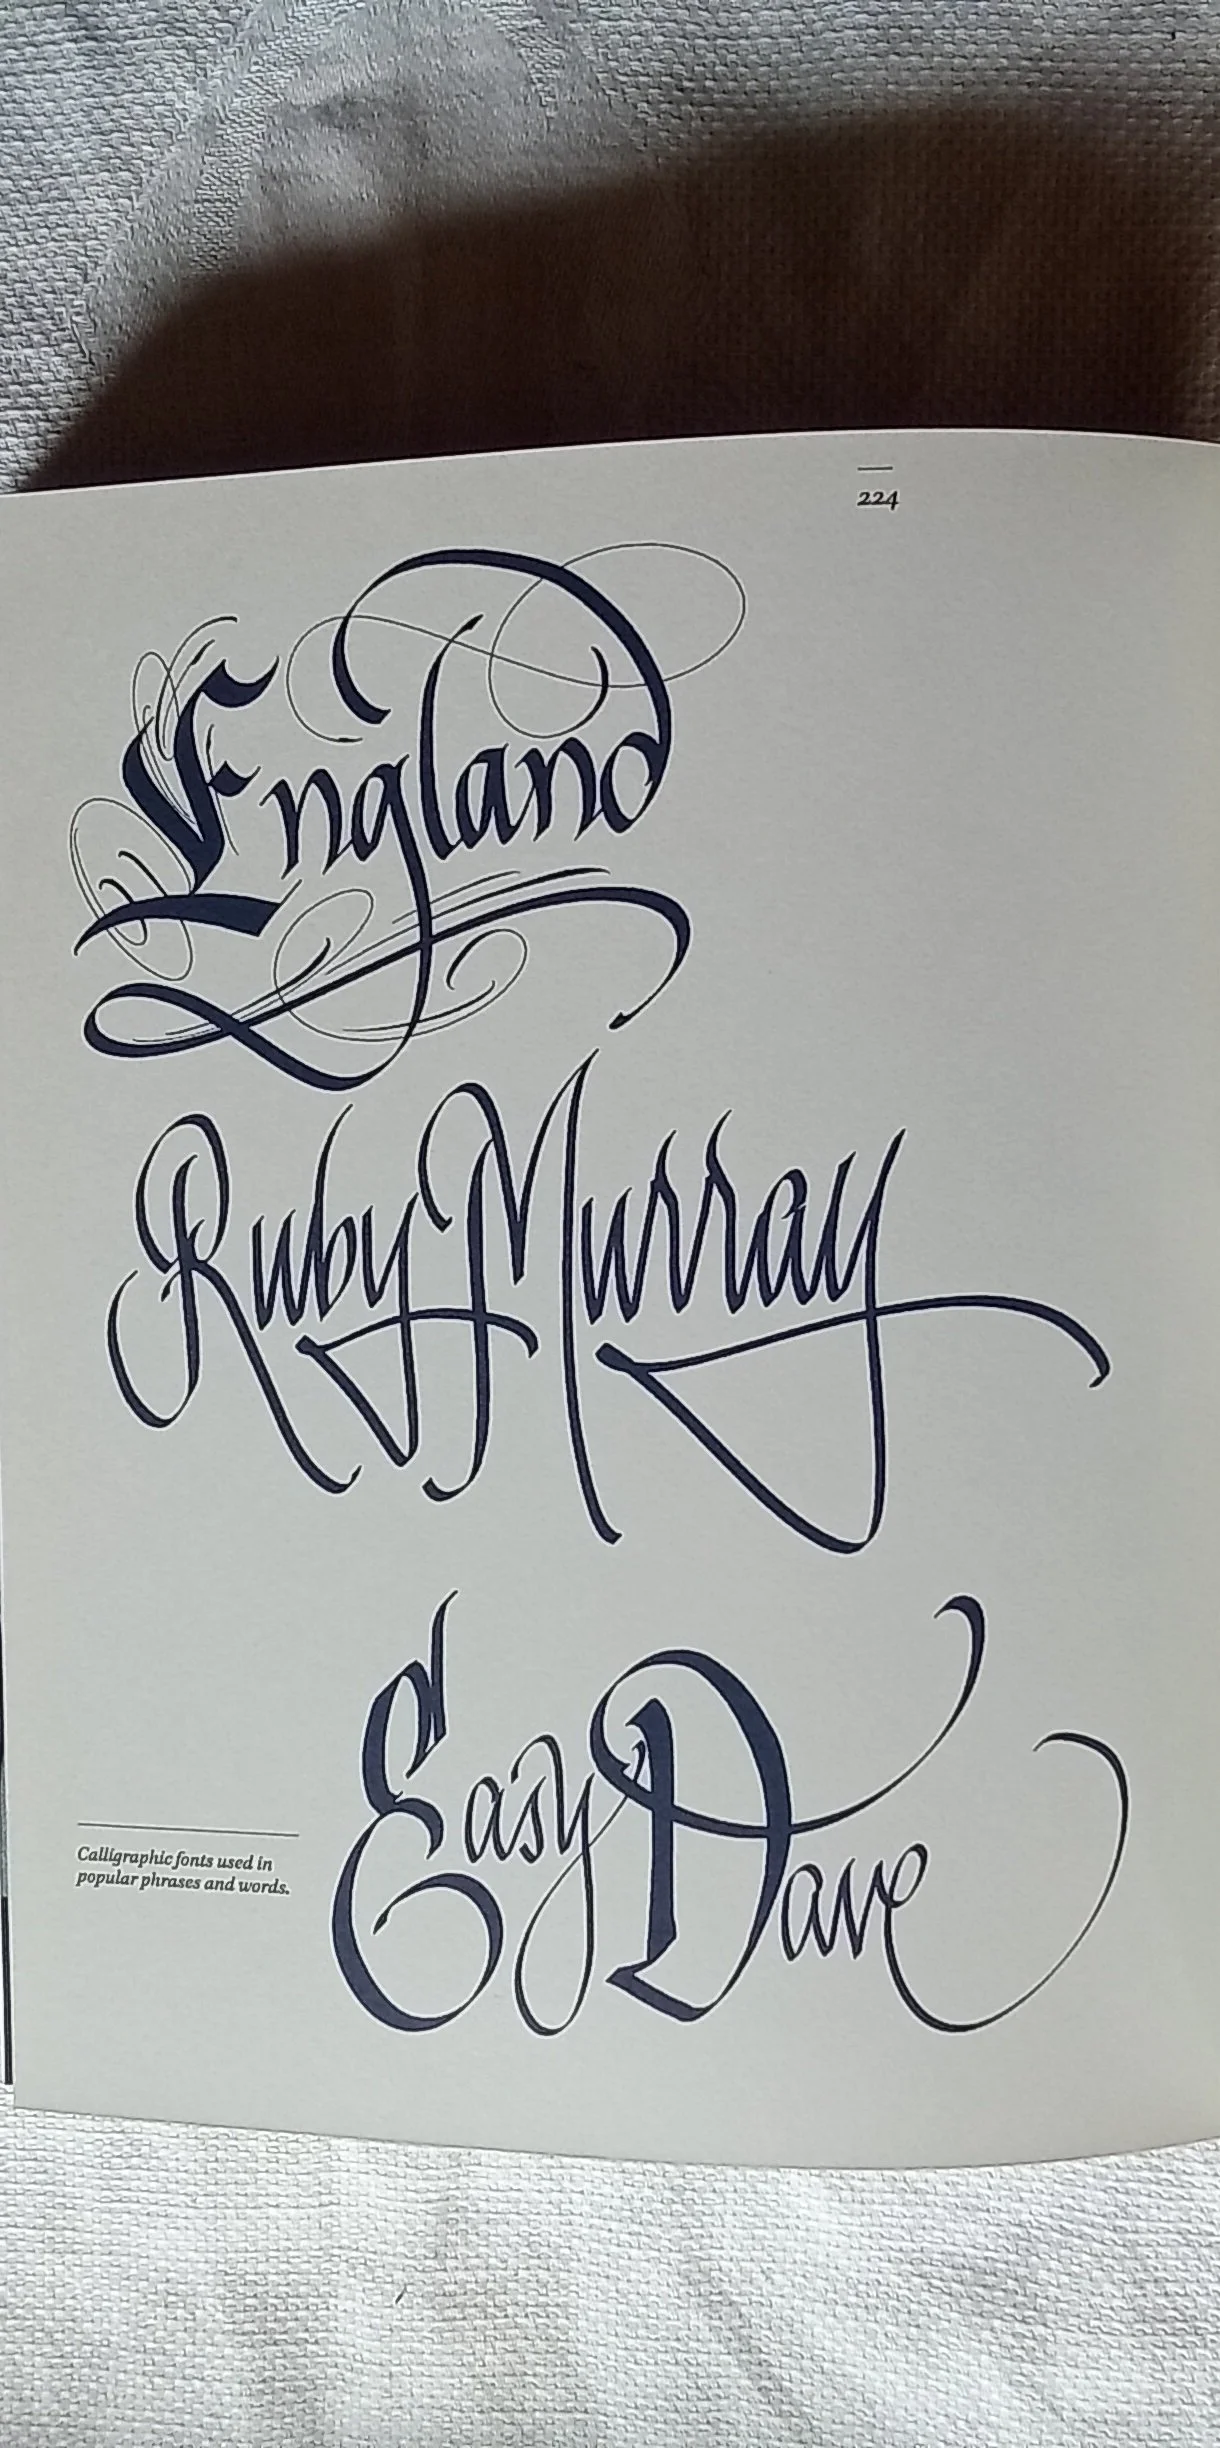 224
England
Ruby Murray
Easy Dave
Calligraphic fonts used in
popular phrases and words.